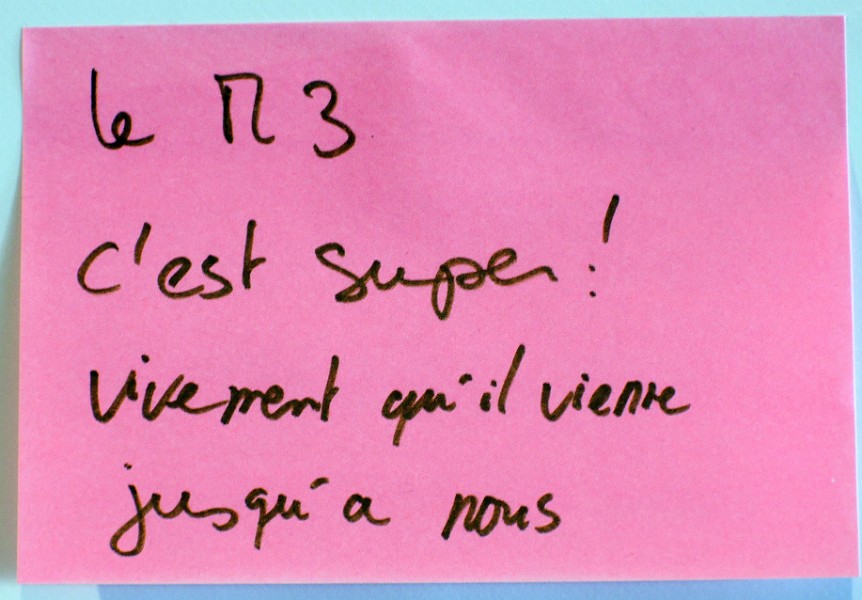 le M3
c'est super!
vivement qu'il vienne
jusqu'a nous